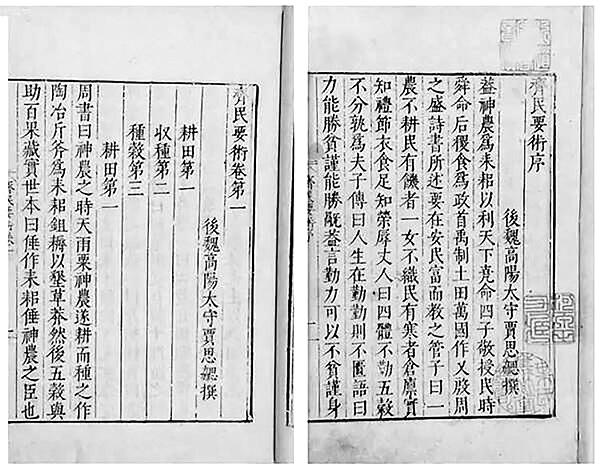 齊民要術序
後魏高陽太守賈思勰撰
蓋神農爲耒耜以利天下堯命四子敬授民時
舜命后稷食爲政首禹制土田萬國作乂殷周
之盛詩書所述要在安民富而教之管子曰一
農不耕民有饑者一女不織民有寒者倉廩實
知禮節衣食足知榮辱丈人曰四體不勤五穀
不分孰爲夫子傳曰人生在勤勤則不匱語曰
力能勝貧謹能勝旤蓋言勤力可以不貧謹身
齊民要術卷第一
後魏高陽太守賈思勰撰
耕田第一
収種第二
種穀第三
耕田第一
周書曰神農之時天雨粟神農遂耕而種之作
陶冶斤斧爲耒耜鉏耨以墾草莽然後五穀與
助百果藏實世本曰倕作耒耜倕神農之臣也